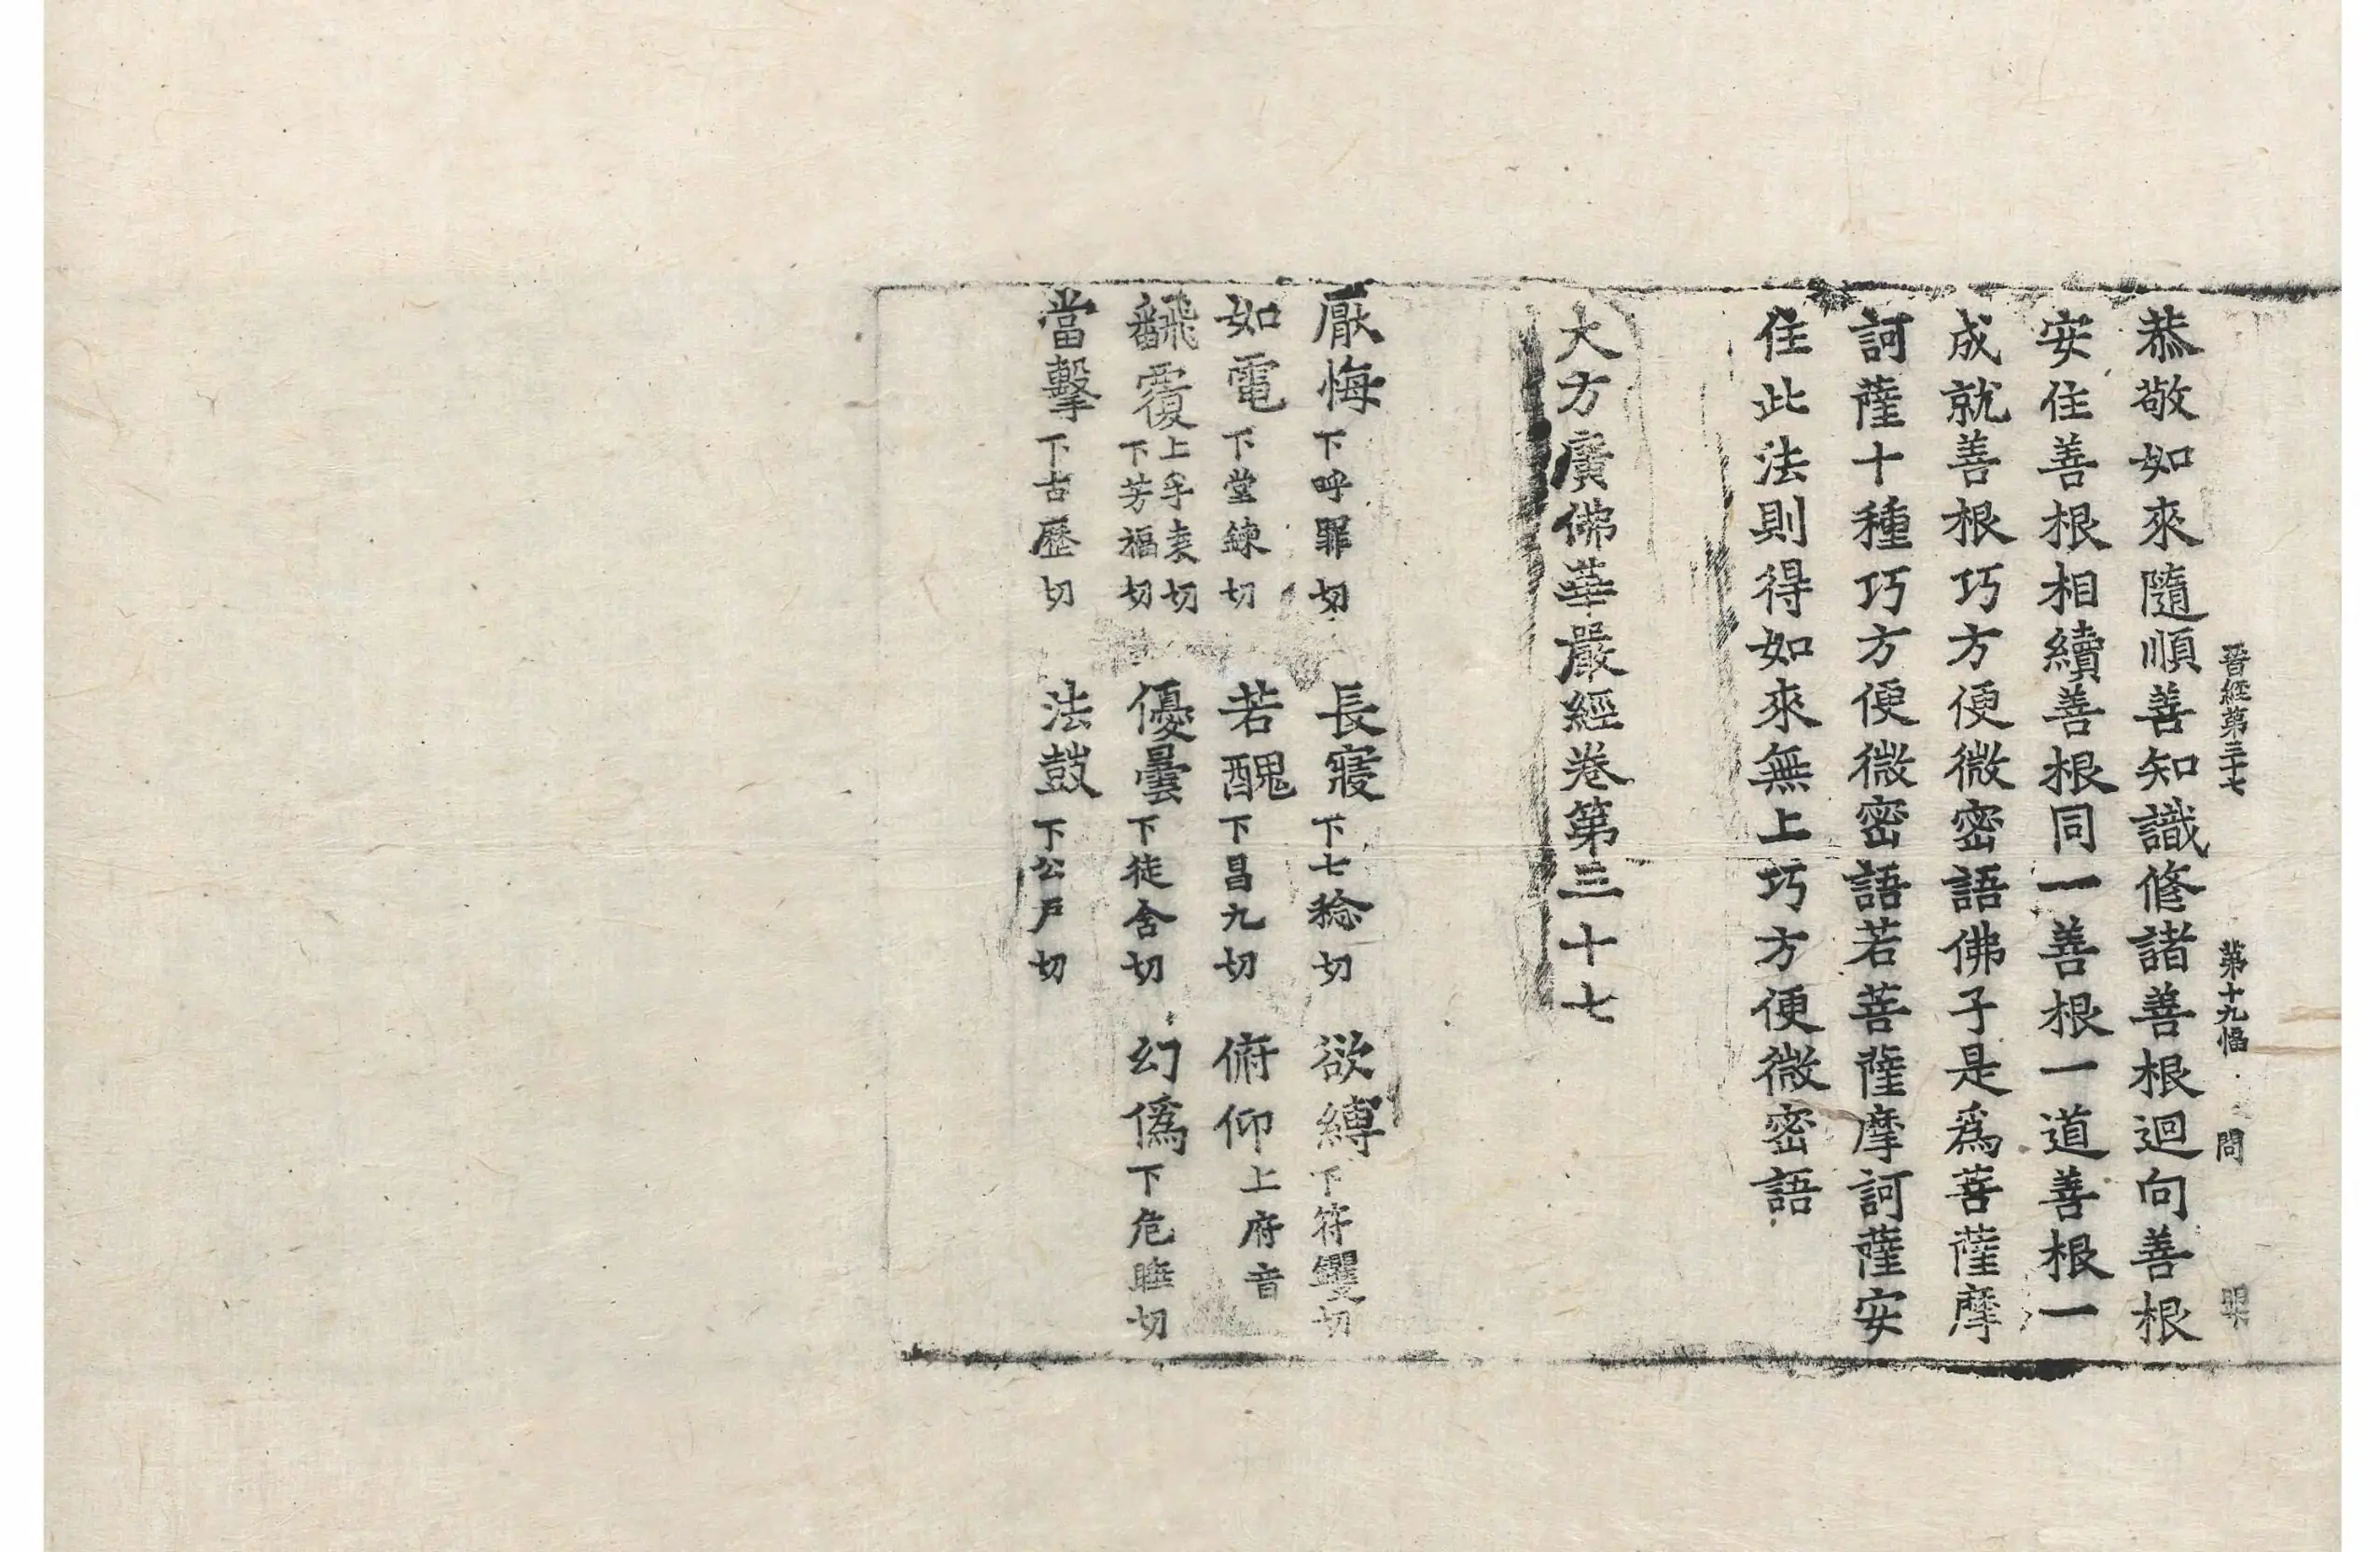 晉經第三十七 第十九幅 問
恭敬如來隨順善知識修諸善根迴向善根
安住善根相續善根同一善根一道善根一
成就善根巧方便微密語佛子是爲菩薩摩
訶薩十種巧方便微密語若菩薩摩訶薩安
住此法則得如來無上巧方便微密語
大方廣佛華嚴經卷第三十七
厭悔下呼罪切 長寢下七稔切 欲縛下符钁切
如電下堂練切 若醜下昌九切 俯仰上府音
飜覆上孚袁切下芳福切 優曇下徒含切 幻僞下危睡切
當擊下古歷切 法鼓下公戶切